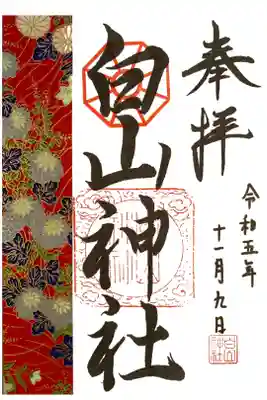 奉拝
令和五年
十一月九日
白山神社